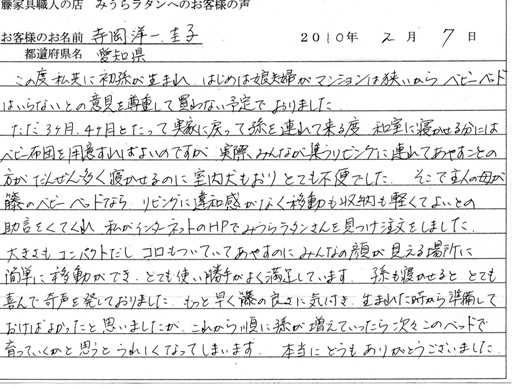 藤家具職人の店 みうらラタンへのお客様の声
お客様のお名前 寺岡洋一、圭子 2010年 2月 7日
都道府県名 愛知県
この度私共に初孫が生まれ、はじめは娘夫婦がマンションは狭いから ベビーベッド
はいらないとの意見を尊重して買わない予定でおりました。
ただ3ヶ月、4ヶ月とたって実家に戻って孫を連れて来る度 和室に寝かせる分には
ベビー布団を用意すればよいのですが 実際みんなが集うリビングに連れてあやすことの
方がだんぜん多く寝かせるのに室内犬もおりとても不便でした。 そこで主人の母が
籐のベビーベッドなら リビングに違和感がなく移動も収納も軽くてよいとの
助言をくてくれ 私がインターネットのHPでみうらラタンさんを見つけ注文をしました。
大きさも コンパクトだし コロもついていてあやすのに みんなの顔が見える場所に
簡単に移動ができ、とても使い勝手がよく満足しています。 孫も寝かせると とても
喜んで奇声を発しておりました。 もっと早く籐の良さに気付き、生まれた時から準備して
おけばよかったと思いましたが、これから順に孫が増えていったら次々このベッドで
育っていくかと思うと うれしくなってしまいます。 本当にどうもありがとうございました。